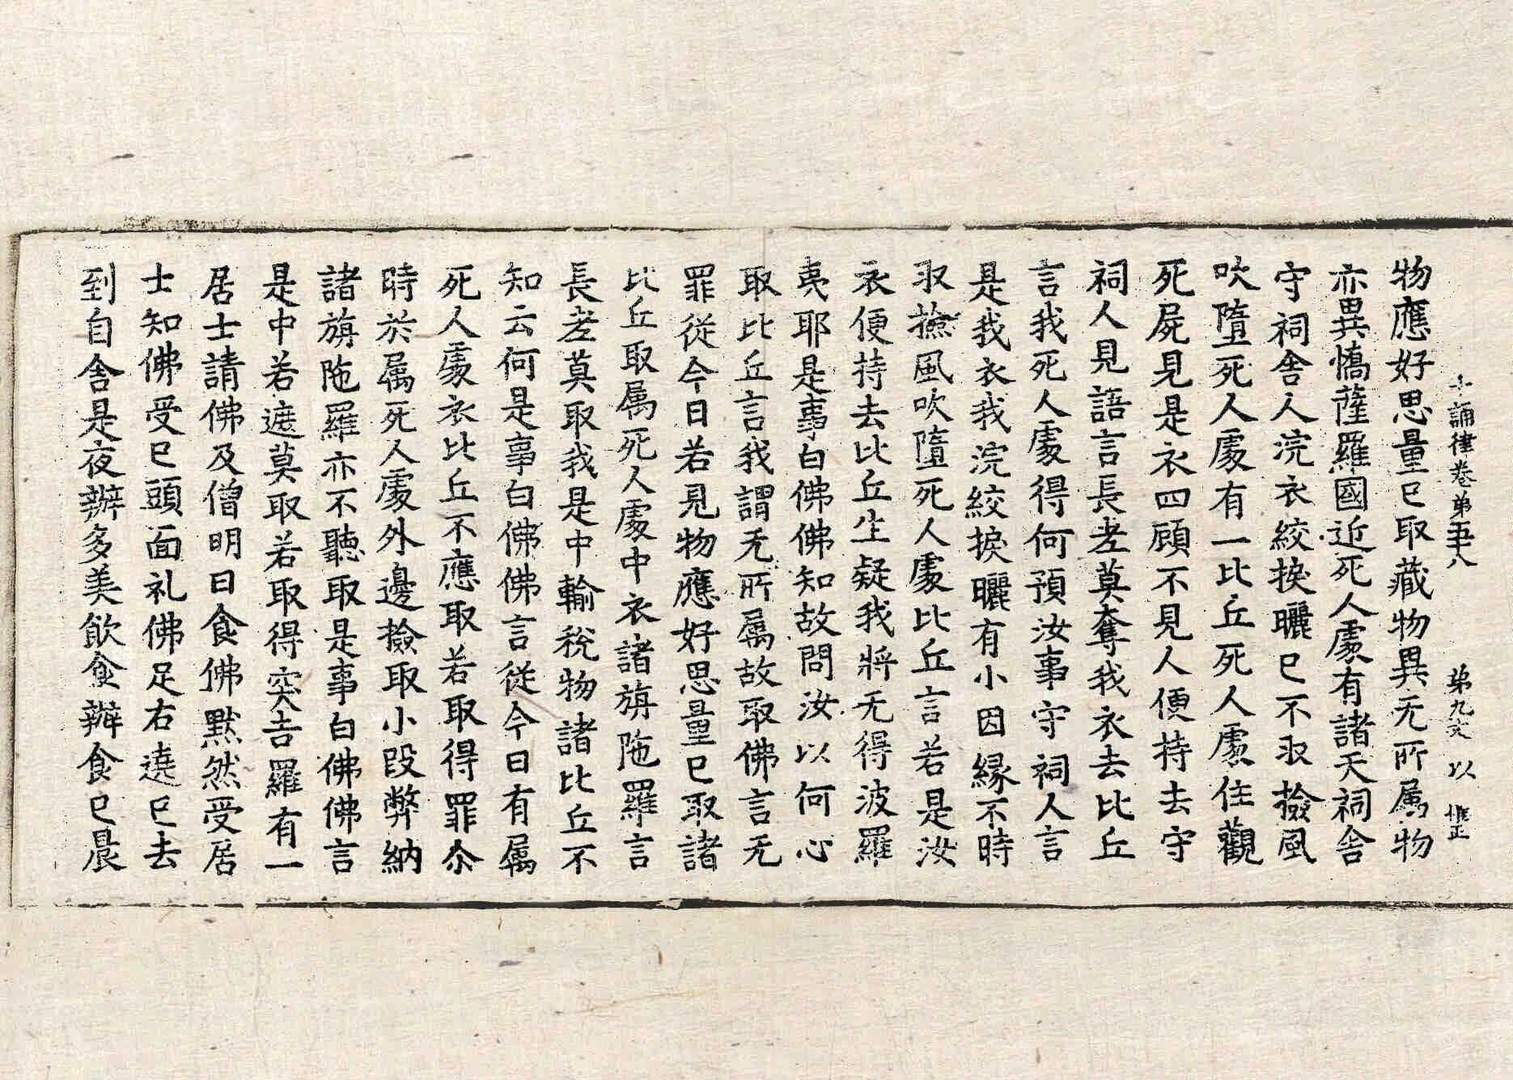 十誦律卷第五十八 第九丈 以
物應好思量已取藏物異无所属物
亦異憍薩羅國近死人處有諸天祠舍
守祠舍人浣衣絞捩曬已不収撿風
吹墮死人處有一比丘死人處住觀
死屍見是衣四顧不見人便持去守
祠人見語言長老莫奪我衣去比丘
言我死人處得何預汝事守祠人言
是我衣我浣絞捩曬有小因緣不時
収撿風吹墮死人處比丘言若是汝
衣便持去比丘生疑我將无得波羅
夷耶是事白佛佛知故問汝以何心
取比丘言我謂无所属故取佛言无
罪從今日若見物應好思量已取諸
比丘取属死人處中衣諸旃陁羅言
長老莫取我是中輸稅物諸比丘不
知云何是事白佛佛言從今日有属
死人處衣比丘不應取若取得罪尒
時於属死人處外邊撿取小段弊納
諸旃陁羅亦不聽取是事白佛佛言
是中若遮莫取若取得突吉羅有一
居士請佛及僧明日食佛默然受居
士知佛受已頭面礼佛足右遶已去
到自舍是夜辦多美飲食辦食已晨